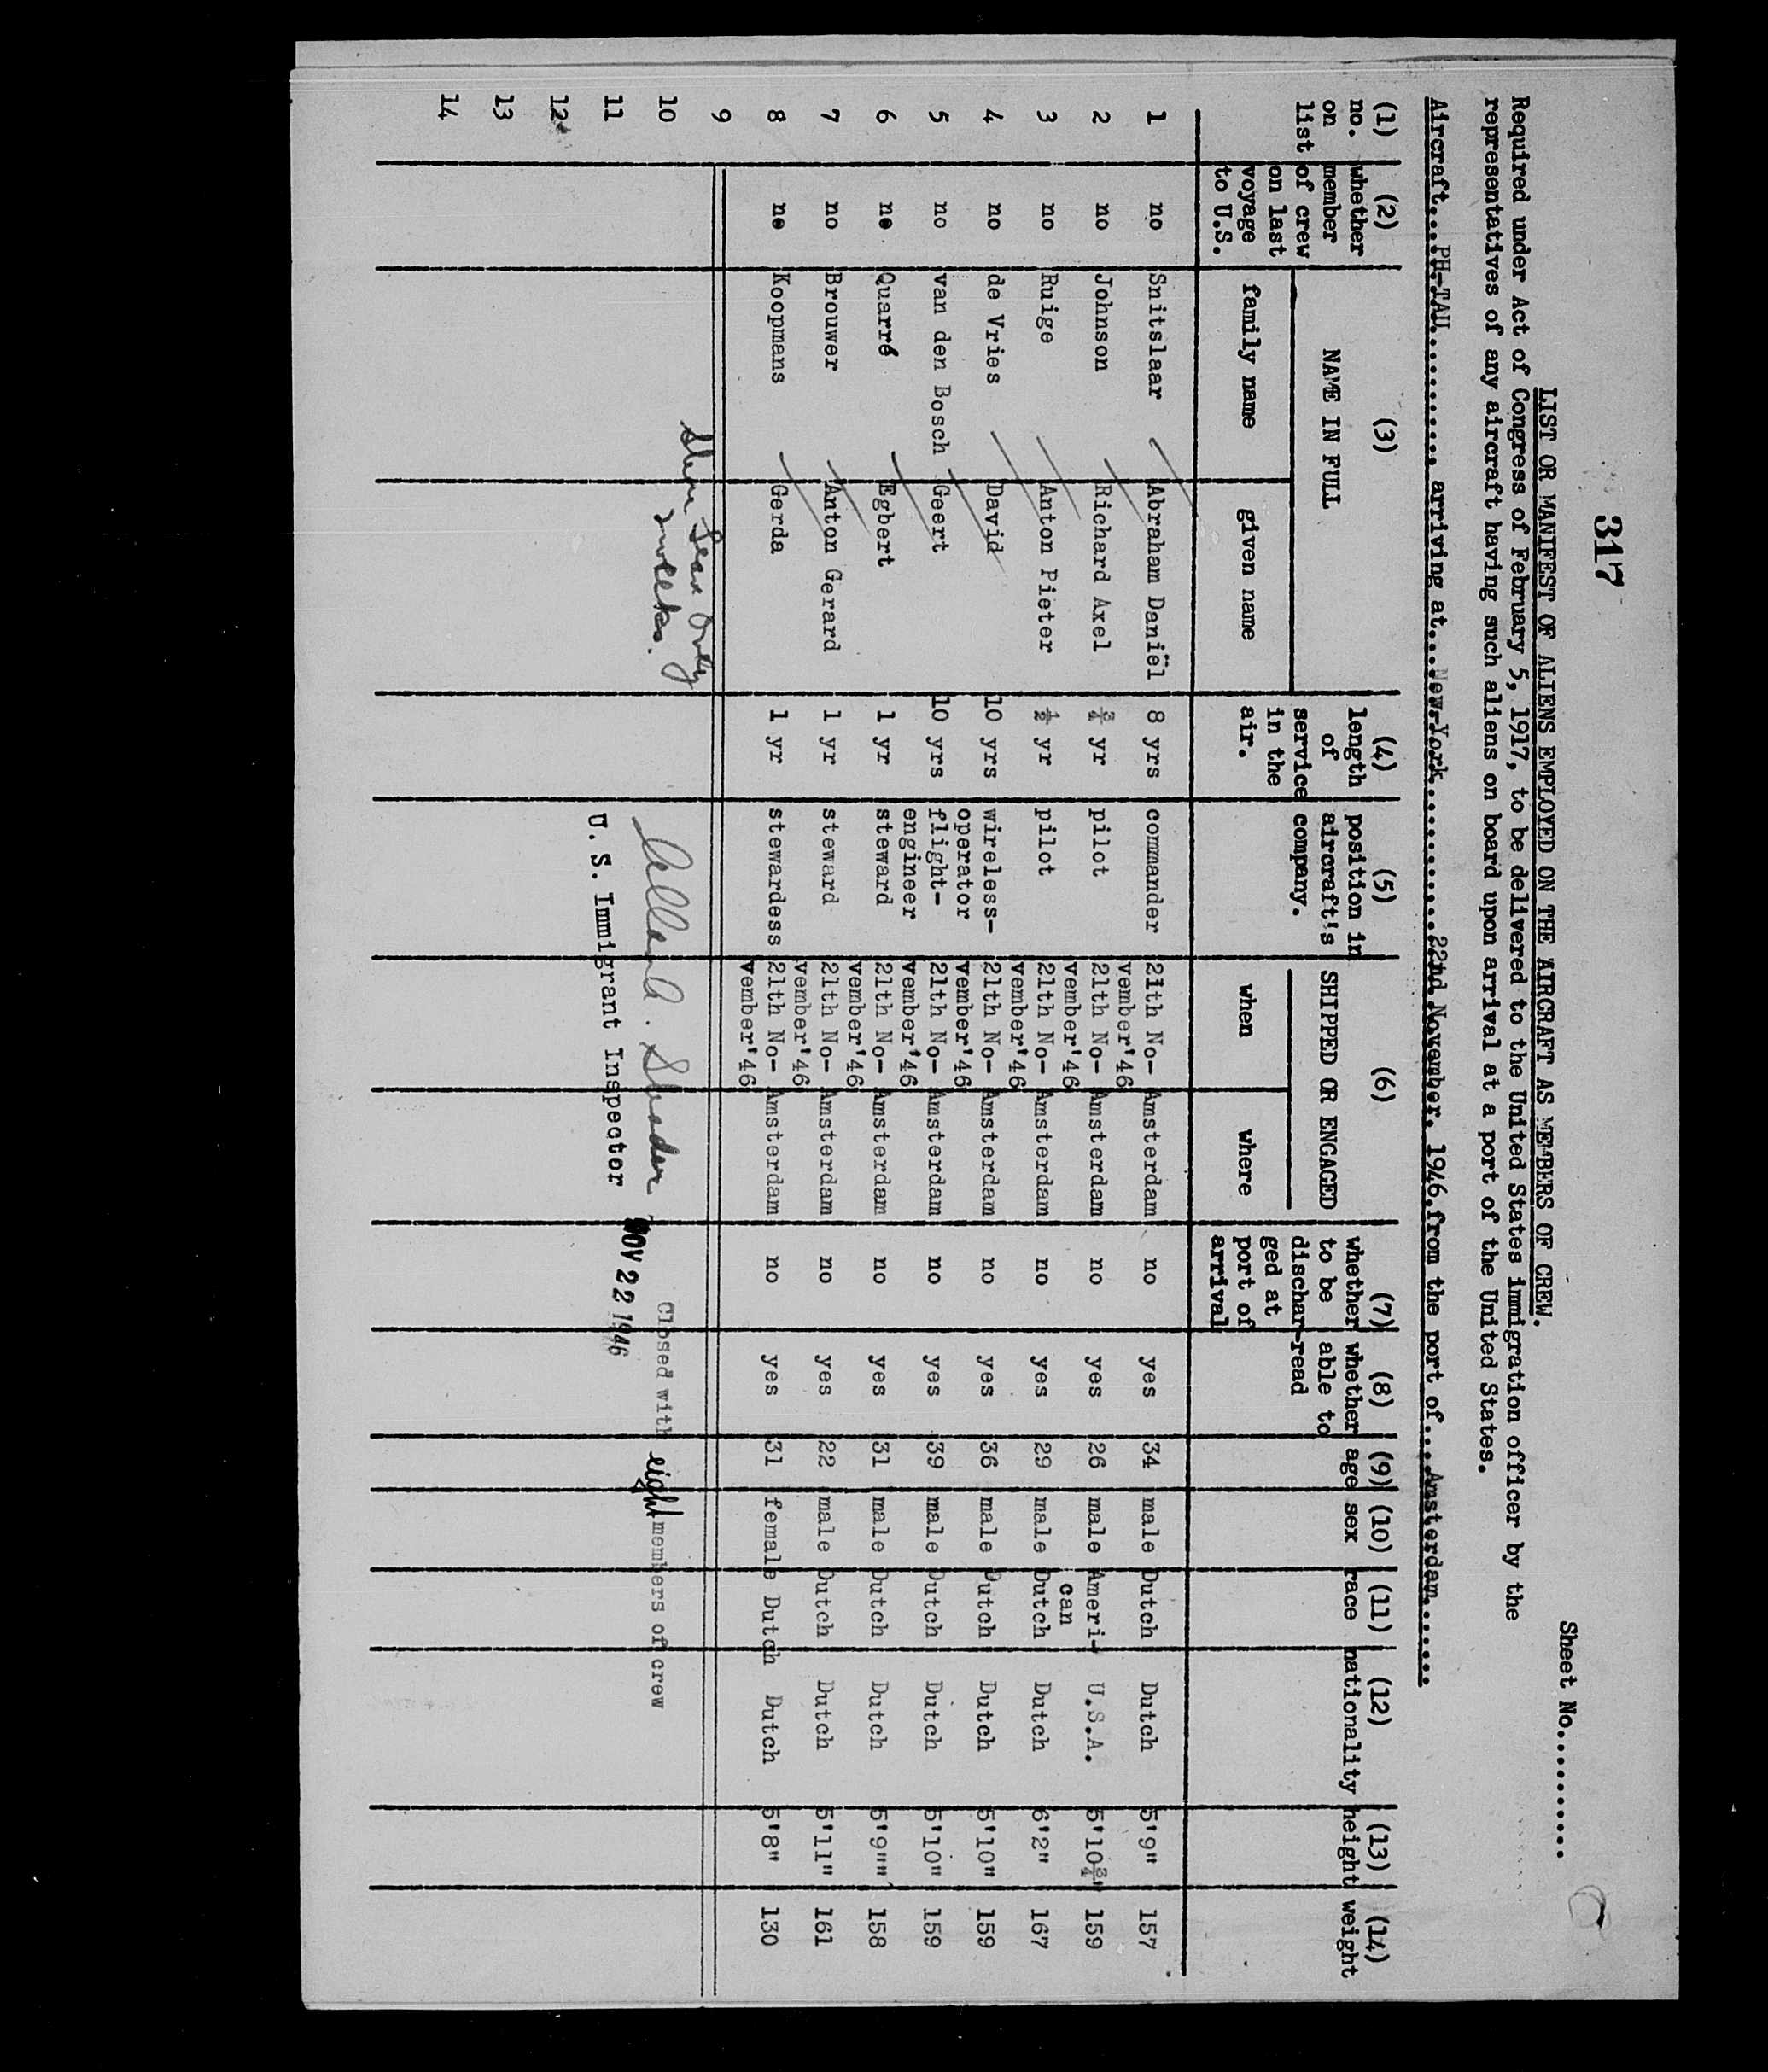 317
Sheet No..........
LIST OR MANIFEST OF ALIENS EMPLOYED ON THE AIRCRAFT AS MEMBERS OF CREW.
Required under Act of Congress of February 5, 1917, to be delivered to the United States immigration officer by the
representatives of any aircraft having such aliens on board upon arrival at a port of the United States.
Aircraft....PH-TAU............ arriving at...New.York..............22nd November, 1946.from the port of....Amsterdam......
(1) (2) (3) (4) (5) (6) (7) (8) (9) (10) (11) (12) (13) (14)
no. on list
whether member of crew on last voyage to U.S.
NAME IN FULL
family name given name
length of service in the air.
position in aircraft's company.
SHIPPED OR ENGAGED
when where
whether to be dischar-ged at port of arrival
whether able to read
age sex race nationality height weight
1 no Snitslaar Abraham Daniël 8 yrs commander 21th No-vember'46 Amsterdam no yes 34 male Dutch Dutch 5'9" 157
2 no Johnson Richard Axel ¾ yr pilot 21th No-vember'46 Amsterdam no yes 26 male Ameri-can U.S.A. 5'10¾" 159
3 no Ruige Anton Pieter ½ yr pilot 21th No-vember'46 Amsterdam no yes 29 male Dutch Dutch 6'2" 167
4 no de Vries David 10 yrs wireless-operator 21th No-vember'46 Amsterdam no yes 36 male Dutch Dutch 5'10" 159
5 no van den Bosch Geert 10 yrs flight-engineer 21th No-vember'46 Amsterdam no yes 39 male Dutch Dutch 5'10" 159
6 no Quarré Egbert 1 yr steward 21th No-vember'46 Amsterdam no yes 31 male Dutch Dutch 5'9"" 158
7 no Brouwer Anton Gerard 1 yr steward 21th No-vember'46 Amsterdam no yes 22 male Dutch Dutch 5'11" 161
8 no Koopmans Gerda 1 yr stewardess 21th No-vember'46 Amsterdam no yes 31 female Dutch Dutch 5'8" 130
9
10 Closed with eight members of crew
11 U. S. Immigrant Inspector NOV 22 1946
12
13
14